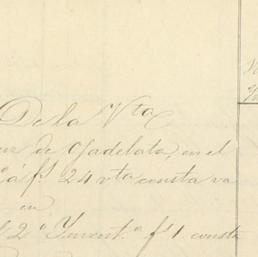 De la V.ta
de ojadelata, en el
a f.s 24 v.ta consta va
en
2.o Ynvent.o f.s 1. consta